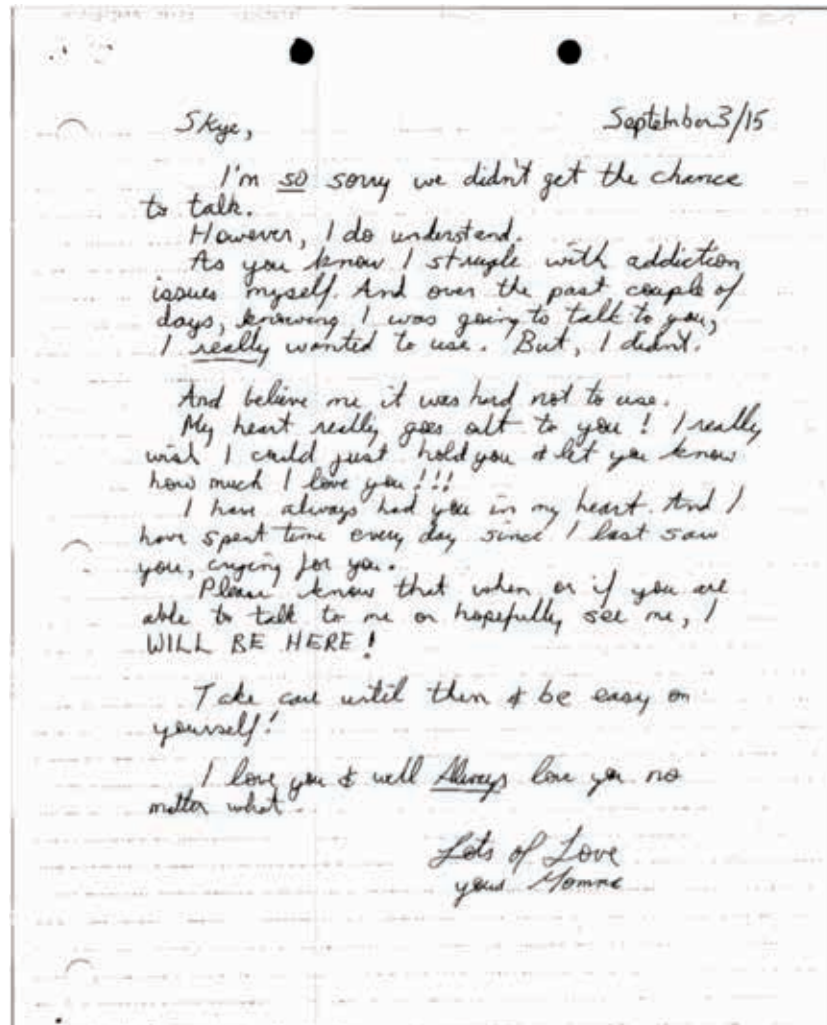 Skye,
September 3/15
I'm so sorry we didn't get the chance
to talk.
However, I do understand.
As you know I struggle with addiction
issues myself. And over the past couple of
days, knowing I was going to talk to you,
I really wanted to use. But, I didn't.
And believe me it was hard not to use.
My heart really goes out to you! I really
wish I could just hold you & let you know
how much I love you!!!
I have always had you in my heart. And I
have spent time every day since I last saw
you, crying for you.
Please know that when or if you are
able to talk to me or hopefully see me, I
WILL BE HERE!
Take care until then & be easy on
yourself!
I love you & will Always love you no
matter what.
Lots of Love
your Momme